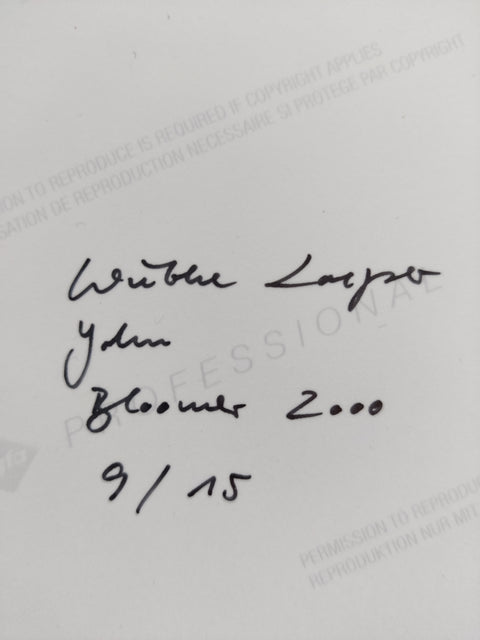 ON TO REPRODUCE IS REQUIRED IF COPYRIGHT APPLIES
SATION DE REPRODUCTION NECESSAIRE SI PROTEGE PAR COPYRIGHT
Wiebke Loeper
John
PROFESSIONAL
Bloomer 2000
9/15
PERMISSION TO REPRODU
REPRODUKTION NUR MIT